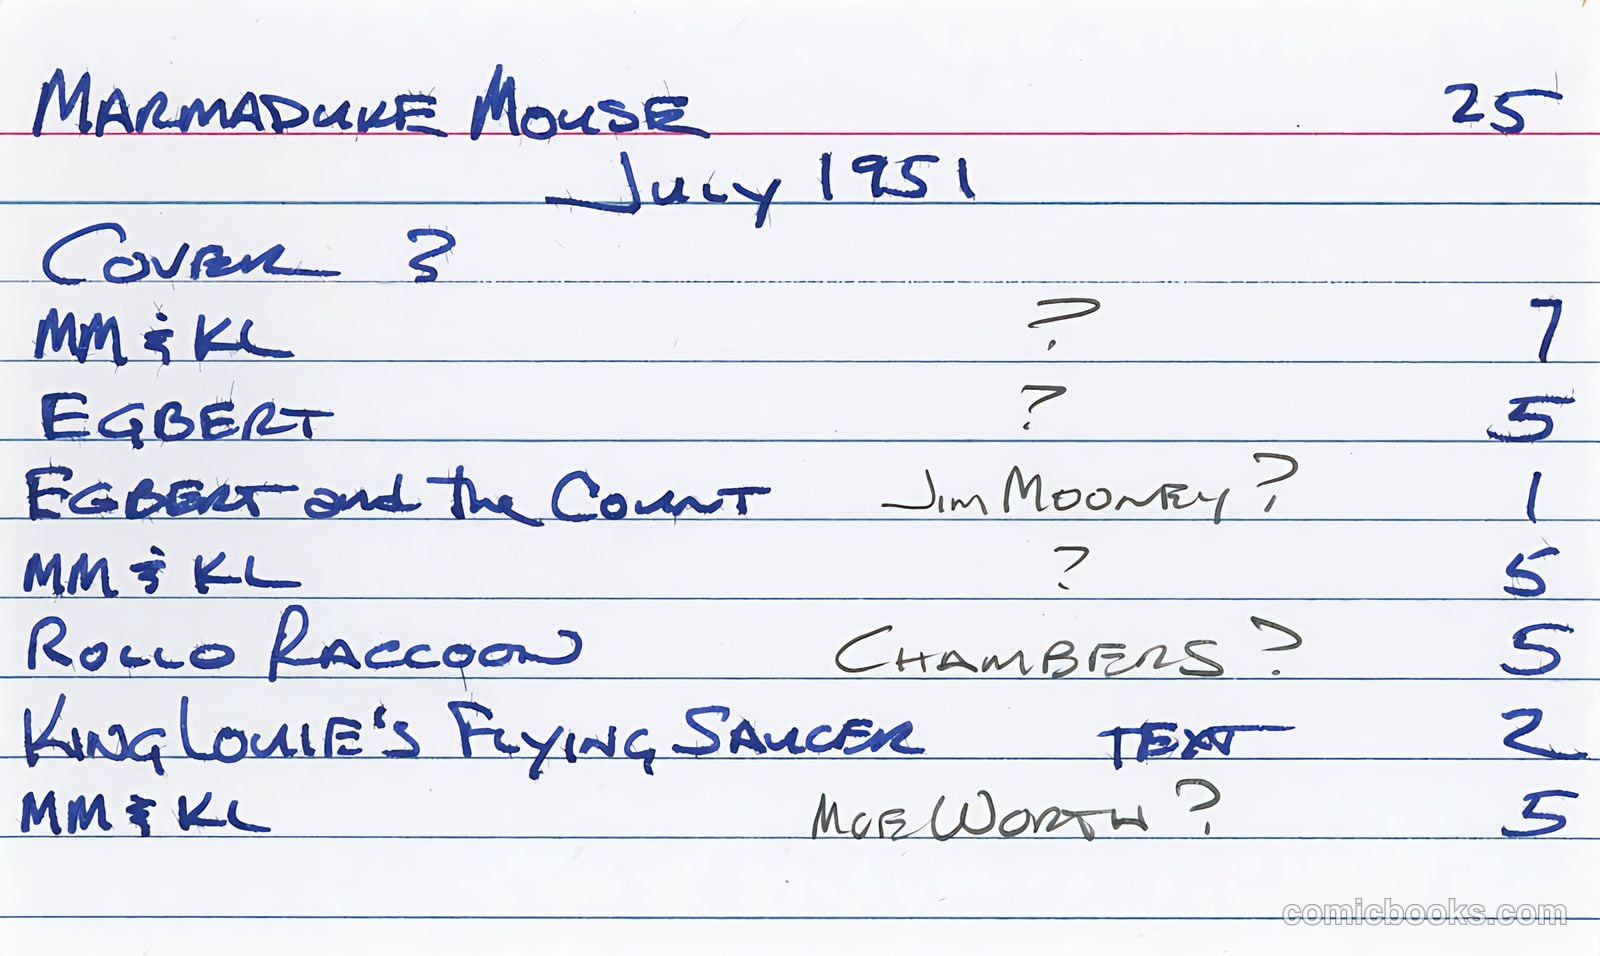 MARMADUKE MOUSE 25
JULY 1951
COVER ?
MM & KL ? 7
EGBERT ? 5
EGBERT and the COUNT JIM MOONEY? 1
MM & KL ? 5
ROLLO RACCOON CHAMBERS? 5
KING LOUIE'S FLYING SAUCER TEXT 2
MM & KL MOE WORTH? 5
comicbooks.com